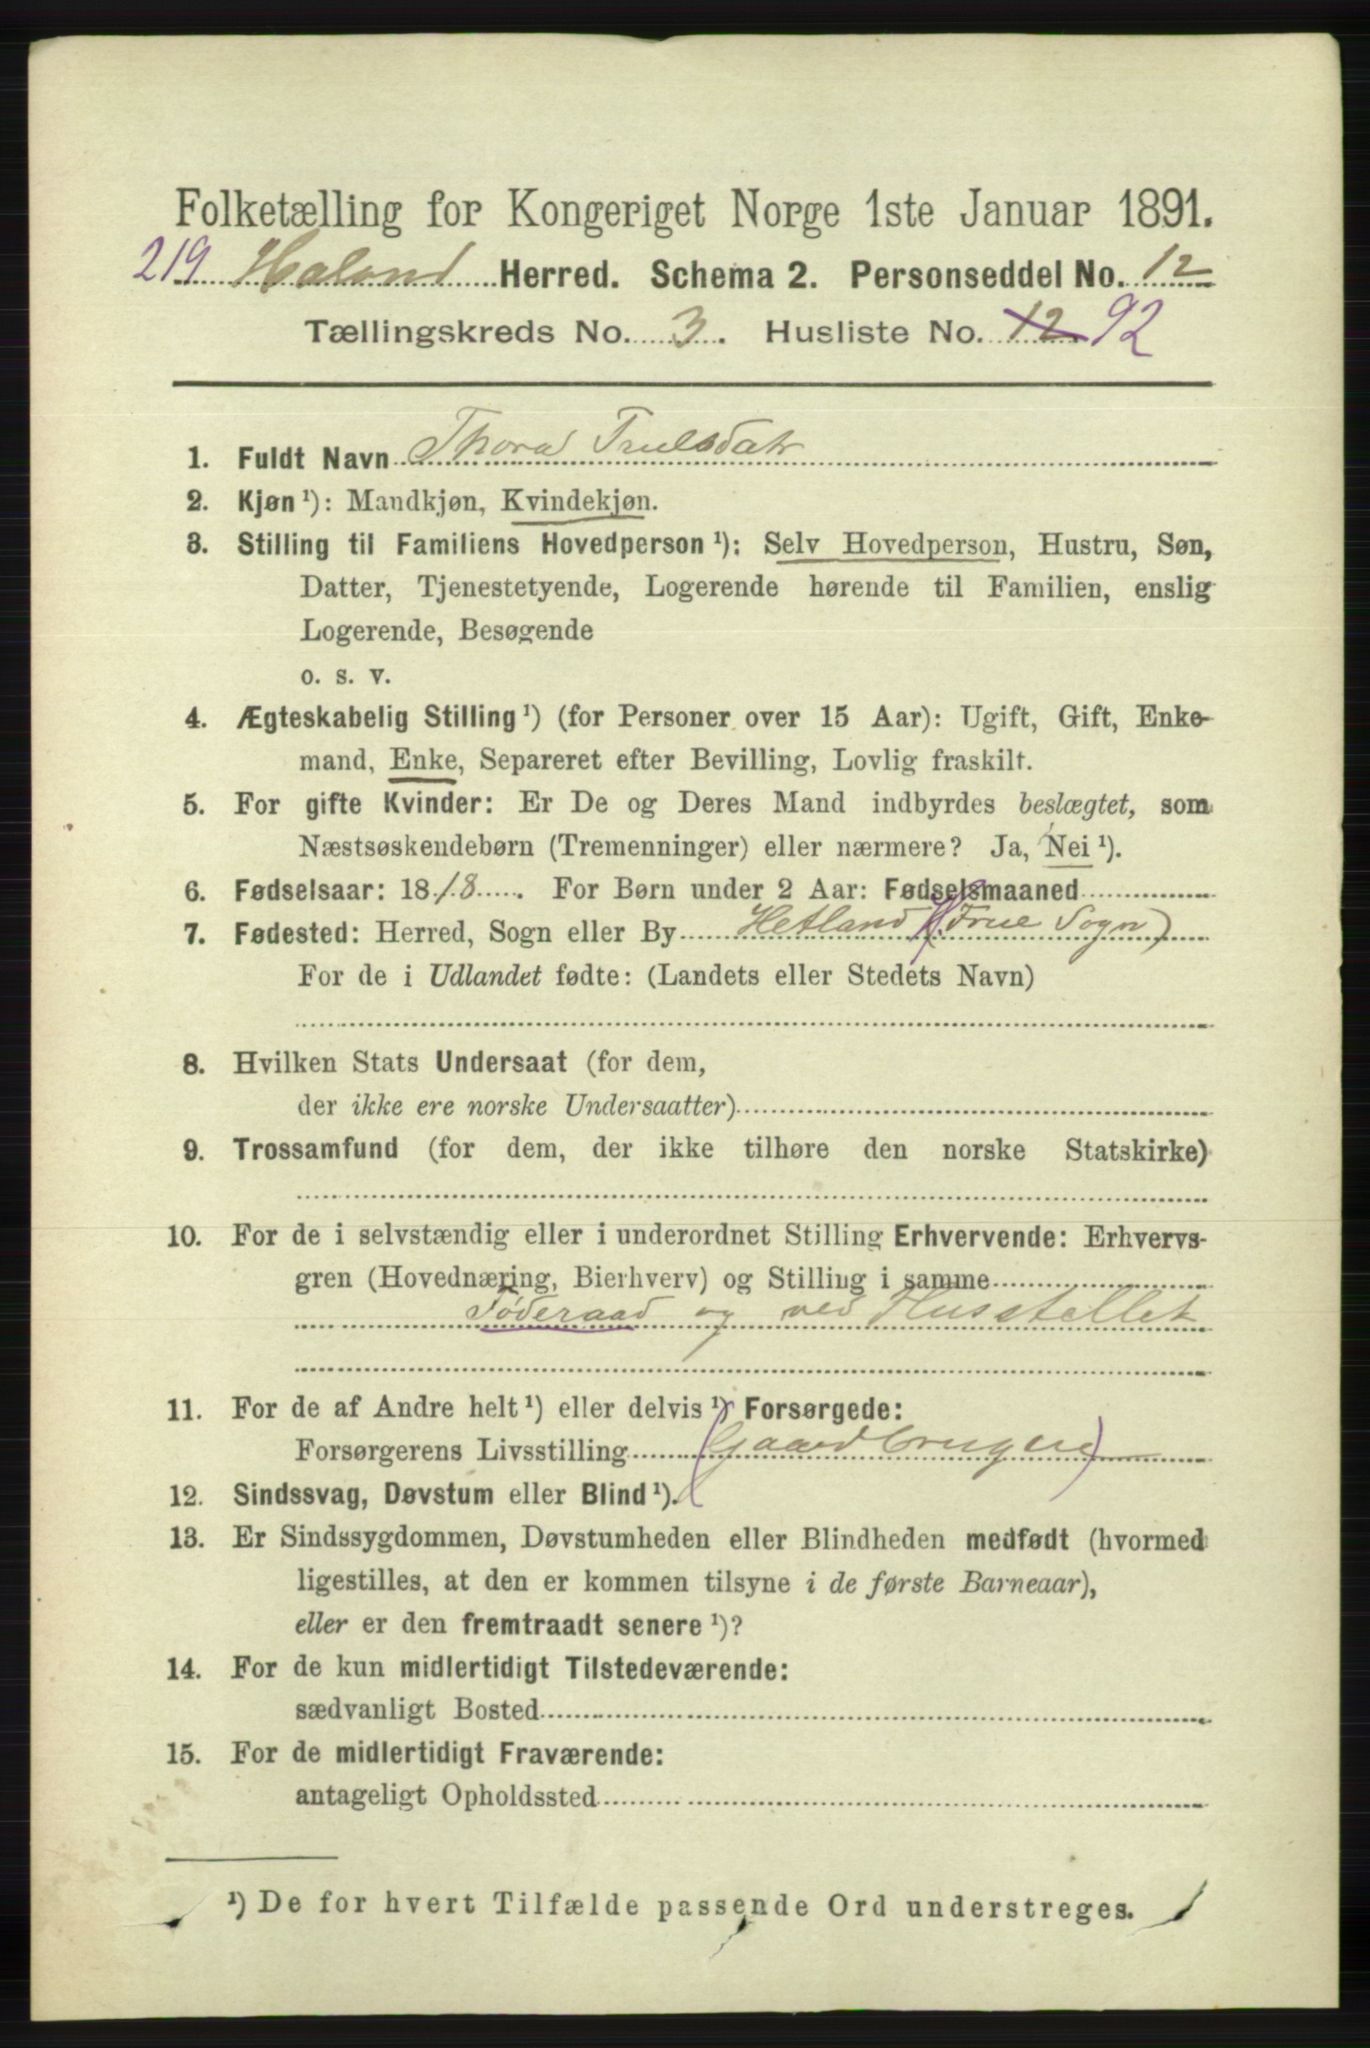 Folketælling for Kongeriget Norge 1ste Januar 1891.
219 Haland Herred. Schema 2. Personseddel No. 12
Tællingskreds No. 3. Husliste No. 12 92
1. Fuldt Navn Thora Trulsdatr
2. Kjøn ¹): Mandkjøn, Kvindekjøn.
3. Stilling til Familiens Hovedperson ¹): Selv Hovedperson, Hustru, Søn,
Datter, Tjenestetyende, Logerende hørende til Familien, enslig
Logerende, Besøgende
o. s. v.
4. Ægteskabelig Stilling ¹) (for Personer over 15 Aar): Ugift, Gift, Enke-
mand, Enke, Separeret efter Bevilling, Lovlig fraskilt.
5. For gifte Kvinder: Er De og Deres Mand indbyrdes beslægtet, som
Næstsøskendebørn (Tremenninger) eller nærmere? Ja, Nei ¹).
6. Fødselsaar: 1818. For Børn under 2 Aar: Fødselsmaaned
7. Fødested: Herred, Sogn eller By Hetland (Frue Sogn)
For de i Udlandet fødte: (Landets eller Stedets Navn)
8. Hvilken Stats Undersaat (for dem,
der ikke ere norske Undersaatter)
9. Trossamfund (for dem, der ikke tilhøre den norske Statskirke)
10. For de i selvstændig eller i underordnet Stilling Erhvervende: Erhvervs-
gren (Hovednæring, Bierhverv) og Stilling i samme
Føderaad og ved Husstellet
11. For de af Andre helt ¹) eller delvis ¹) Forsørgede:
Forsørgerens Livsstilling (Gaardbruger)
12. Sindssvag, Døvstum eller Blind ¹).
13. Er Sindssygdommen, Døvstumheden eller Blindheden medfødt (hvormed
ligestilles, at den er kommen tilsyne i de første Barneaar),
eller er den fremtraadt senere ¹)?
14. For de kun midlertidigt Tilstedeværende:
sædvanligt Bosted
15. For de midlertidigt Fraværende:
antageligt Opholdssted
¹) De for hvert Tilfælde passende Ord understreges.